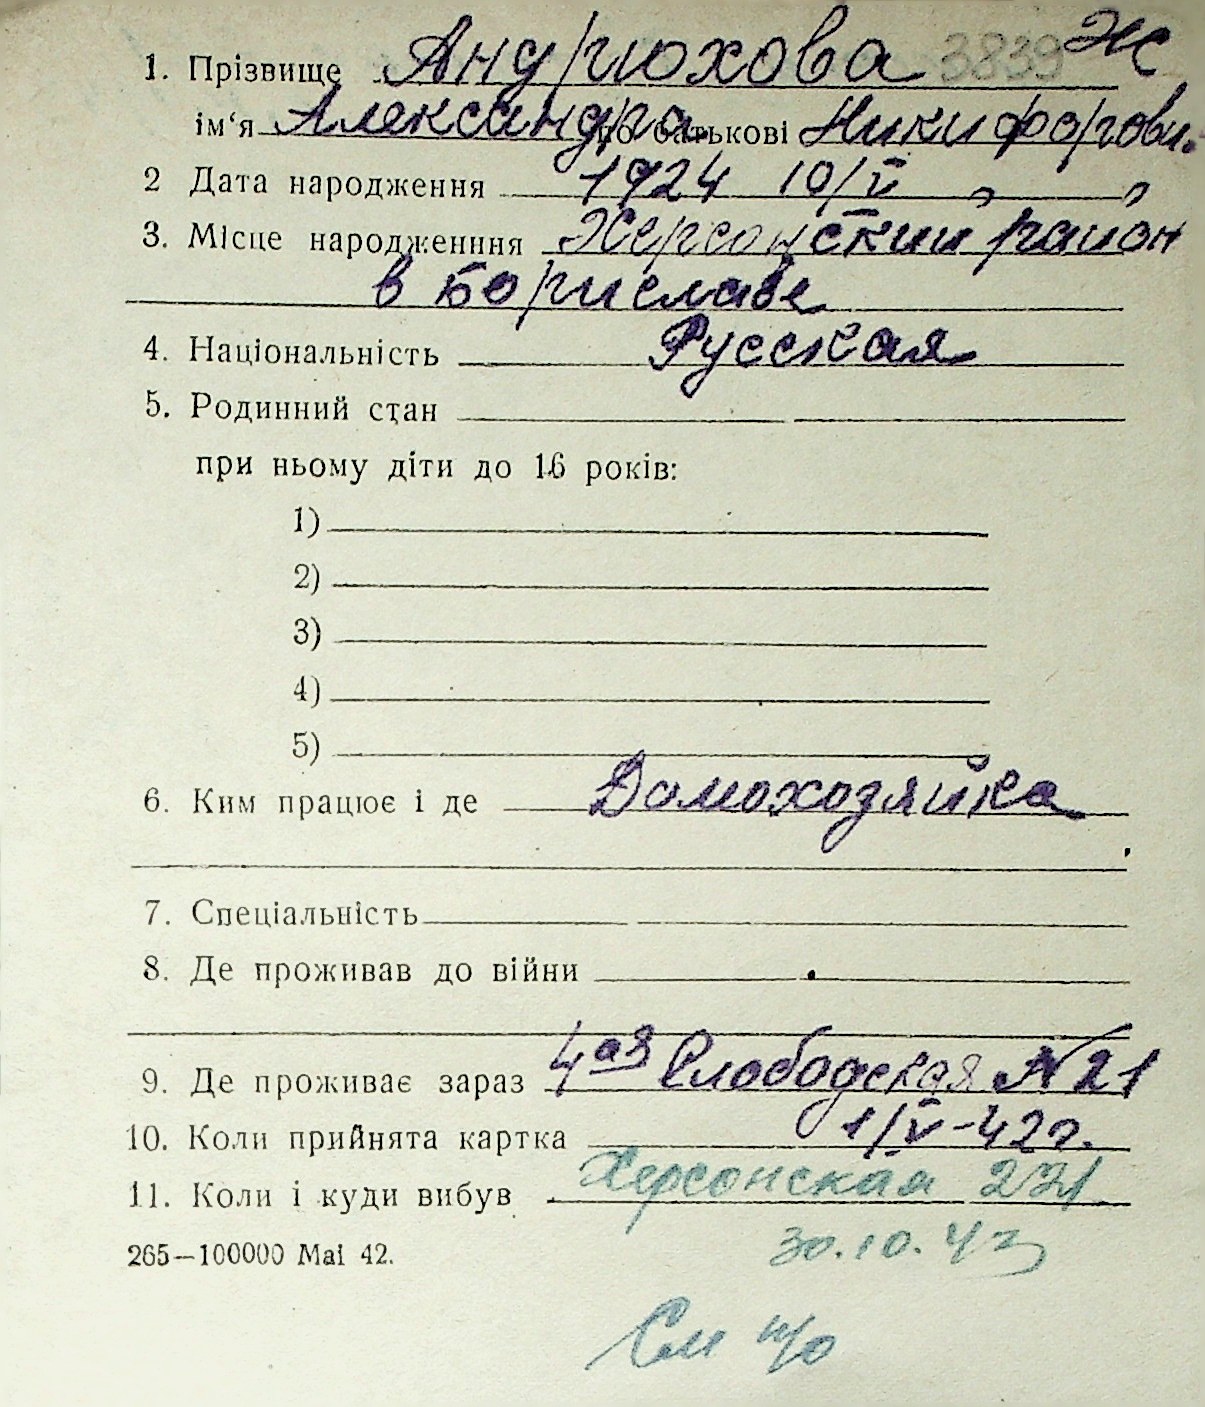 1. Прізвище Андрюхова 3839 Ж
ім‘я Александра по батькові Никифорови.
2 Дата народження 1924 10/V
3. Місце народженння Херсонский район
в Бориславе
4. Національність Русская
5. Родинний стан
при ньому діти до 16 років:
1)
2)
3)
4)
5)
6. Ким працює і де Домохозяйка
7. Спеціальність
8. Де проживав до війни
9. Де проживає зараз 4ая Слободская № 21
10. Коли прийнята картка 1/V-42г.
11. Коли і куди вибув Херсонская 231
265—100000 Mai 42.
30.10.42
См